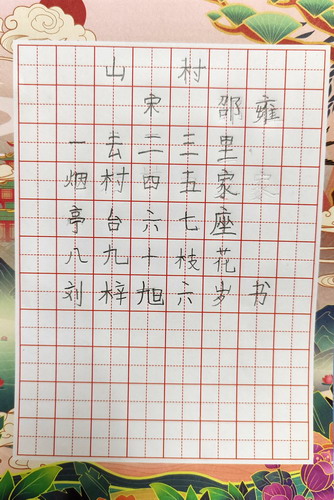 山村
宋 邵雍
一去二三里
烟村四五家
亭台六七座
八九十枝花
刘梓旭六岁书